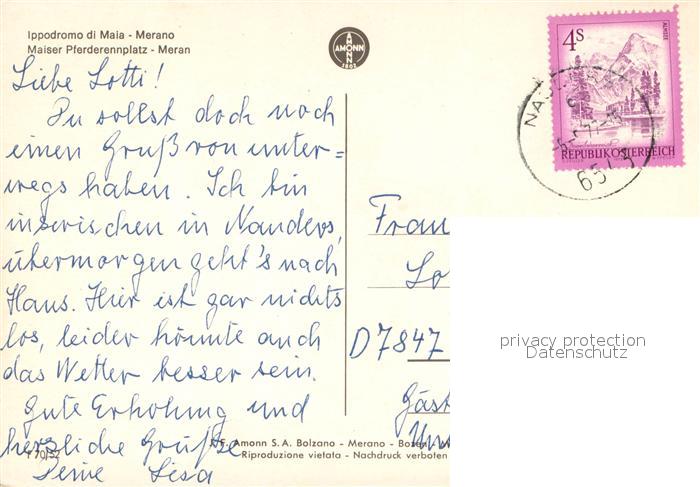 Ippodromo di Maia - Merano
Maiser Pferderennplatz - Meran
AMONN
1802
4S
ALMSEE
REPUBLIK ÖSTERREICH
Liebe Lotti!
Du sollst doch noch
einen Gruß von unter=
wegs haben. Ich bin
inzwischen in Nauders,
übermorgen geht's nach
Haus. Hier ist gar nichts
los, leider könnte auch
das Wetter besser sein.
Gute Erholung und
herzliche Grüße
Deine Lisa
Frau
Lo
D7847
Gäst
privacy protection
Datenschutz
F. Amonn S.A. Bolzano - Merano - Bozen -
Riproduzione vietata - Nachdruck verboten